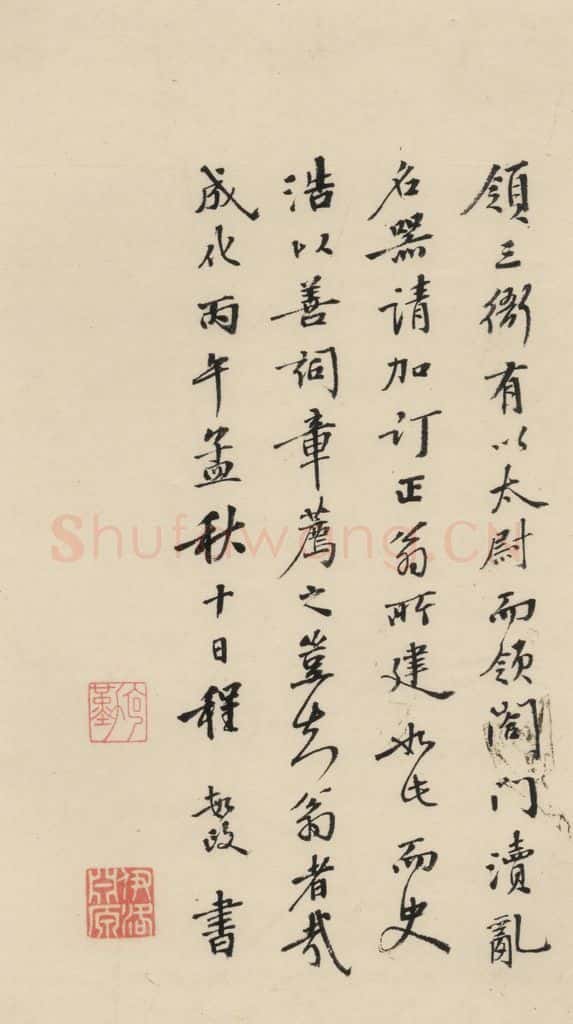 領三衙有以太尉而領閤門瀆亂
名器請加訂正翁所建如此而史
浩以善詞章薦之豈知翁者哉
成化丙午孟秋十日程敏政書
Shufawang.CN